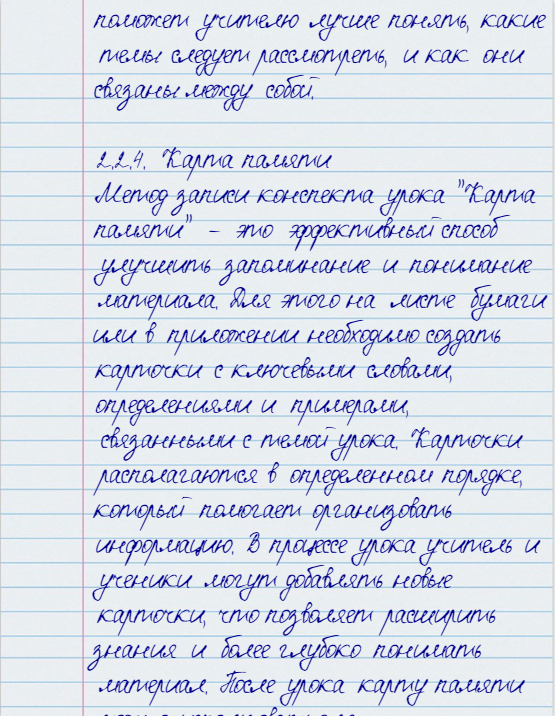 поможет учителю лучше понять, какие
темы следует рассмотреть, и как они
связаны между собой.
2.2.4. Карта памяти
Метод записи конспекта урока "Карта
памяти" – это эффективный способ
улучшить запоминание и понимание
материала. Для этого на листе бумаги
или в приложении необходимо создать
карточки с ключевыми словами,
определениями и примерами,
связанными с темой урока. Карточки
располагаются в определенном порядке,
который помогает организовать
информацию. В процессе урока учитель и
ученики могут добавлять новые
карточки, что позволяет расширить
знания и более глубоко понимать
материал. После урока карту памяти